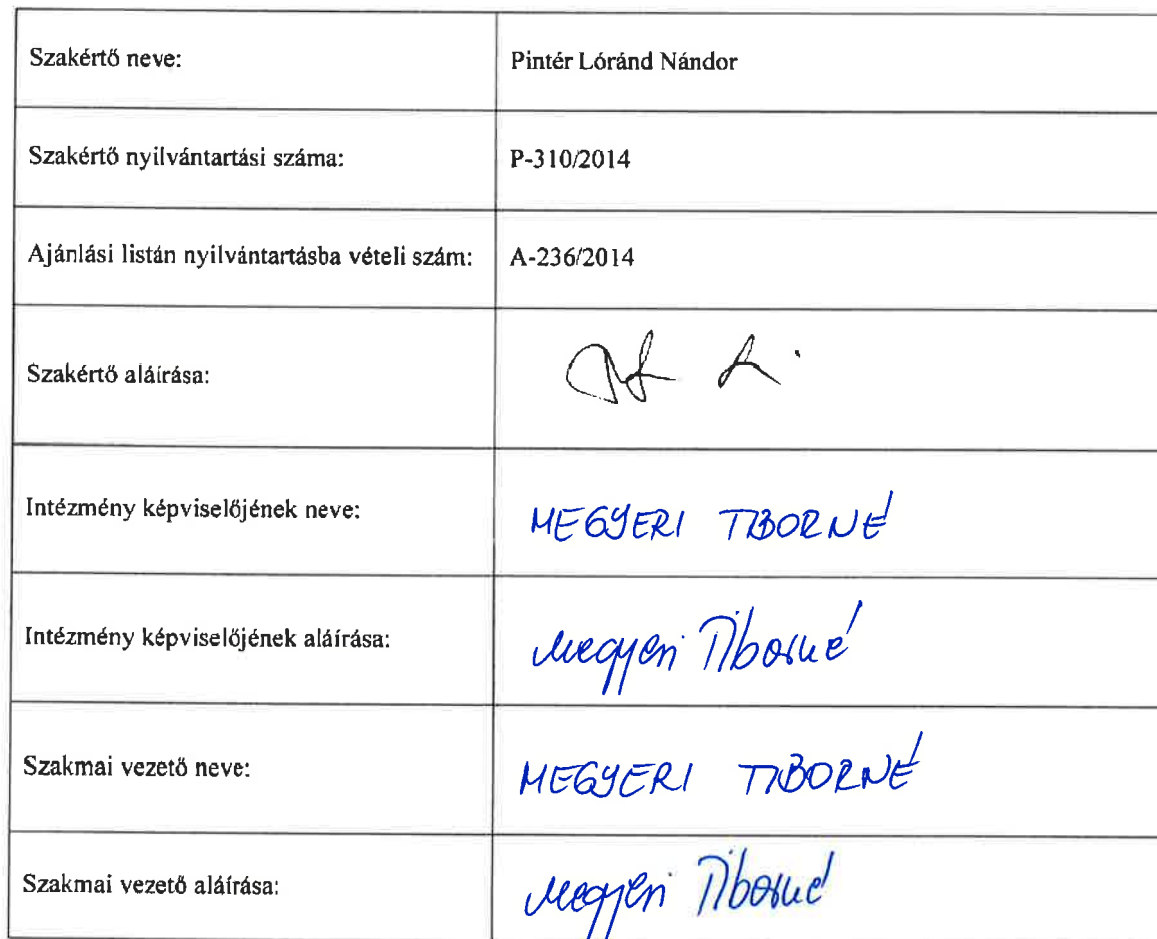 Szakértő neve: Pintér Lóránd Nándor
Szakértő nyilvántartási száma: P-310/2014
Ajánlási listán nyilvántartásba vételi szám: A-236/2014
Szakértő aláírása:
Intézmény képviselőjének neve: MEGYERI TIBORNÉ
Intézmény képviselőjének aláírása: Megyeri Tiborné
Szakmai vezető neve: MEGYERI TIBORNÉ
Szakmai vezető aláírása: Megyeri Tiborné